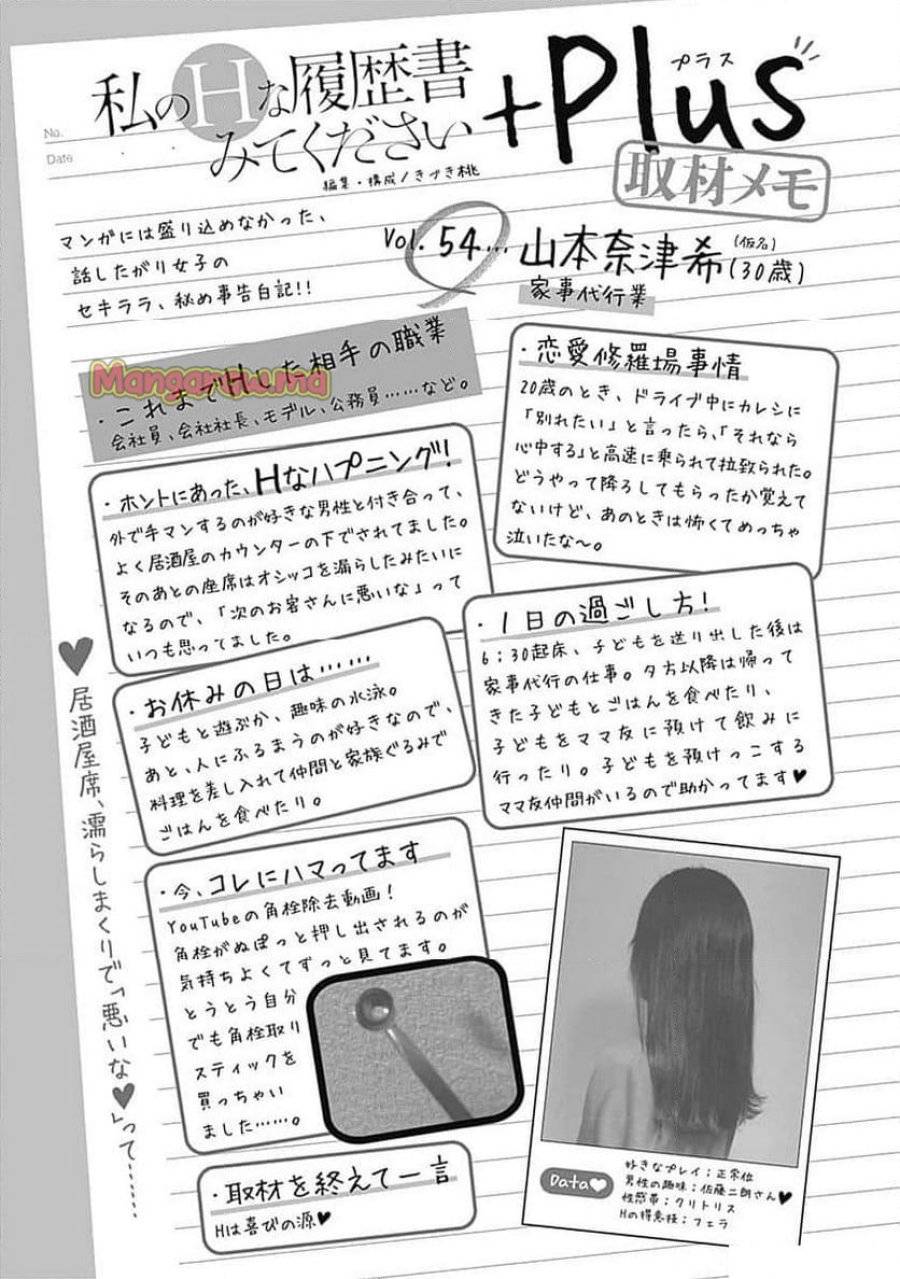 No.
Date
私のHな履歴書
みてください
+Plus
プラス
取材メモ
編集・構成/きづき桃
マンガには盛り込めなかった、
話したがり女子の
セキララ、秘め事告白記!!
Vol. 54…
山本奈津希(仮名)(30歳)
家事代行業
・これまでHした相手の職業
会社員、会社社長、モデル、公務員……など。
・恋愛修羅場事情
20歳のとき、ドライブ中にカレシに
「別れたい」と言ったら、「それなら
心中する」と高速に乗られて拉致られた。
どうやって降ろしてもらったか覚えて
ないけど、あのときは怖くてめっちゃ
泣いたな〜。
・ホントにあった、Hなハプニング!
外で手マンするのが好きな男性と付き合って、
よく居酒屋のカウンターの下でされてました。
そのあとの座席はオシッコを漏らしたみたいに
なるので、「次のお客さんに悪いな」って
いつも思ってました。
・1日の過ごし方!
6:30起床、子どもを送り出した後は
家事代行の仕事。夕方以降は帰って
きた子どもとごはんを食べたり、
子どもをママ友に預けて飲みに
行ったり。子どもを預けっこする
ママ友仲間がいるので助かってます♥
・お休みの日は……
子どもと遊ぶか、趣味の水泳。
あと、人にふるまうのが好きなので、
料理を差し入れて仲間と家族ぐるみで
ごはんを食べたり。
・今、コレにハマってます
YouTubeの角栓除去動画!
角栓がぬぽっと押し出されるのが
気持ちよくてずっと見てます。
とうとう自分
でも角栓取り
スティックを
買っちゃい
ました……。
・取材を終えて一言
Hは喜びの源♥
♥居酒屋席、濡らしまくりで「悪いな♥」って……
Data♥
好きなプレイ:正常位
男性の趣味:佐藤二朗さん♥
性感帯:クリトリス
Hの得意技:フェラ